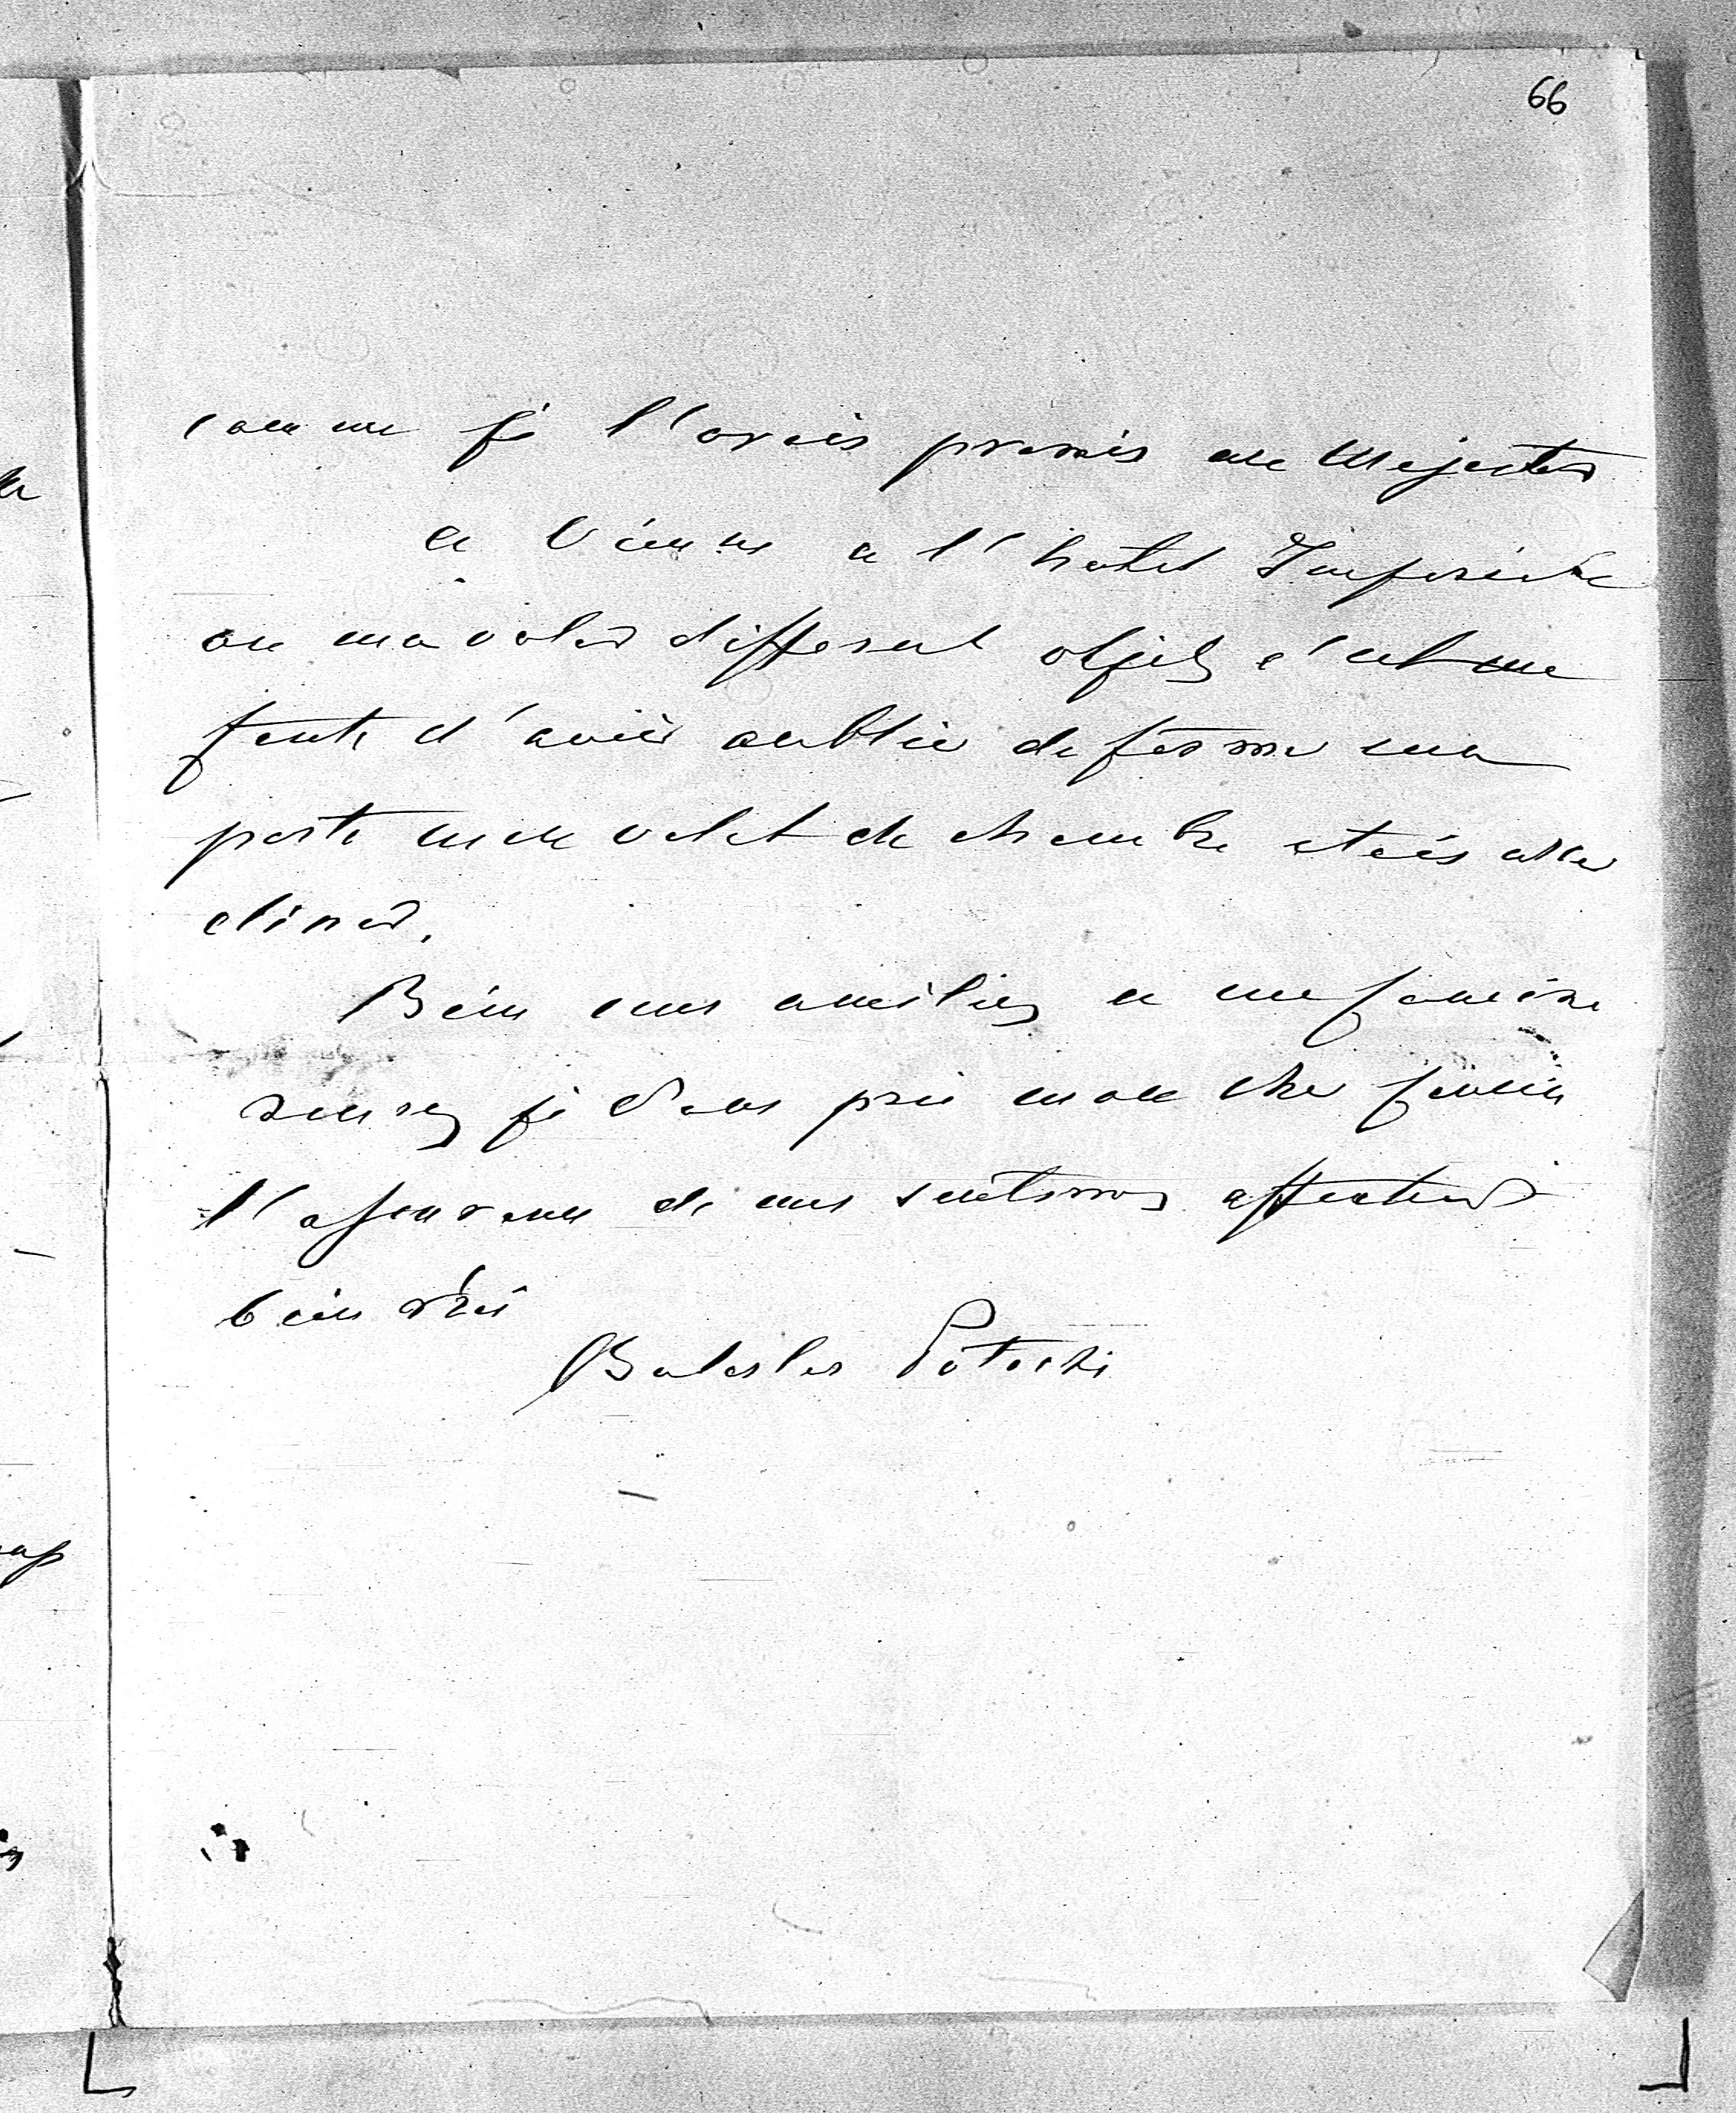 66
comme je l'avais promis au Majested
a Vienne a l'hotel Imperiale
on ma volé different objets c'est ma
faute d'avoir oublié de fermé ma
porte mon valet de chambre etais allé
diner.
Bien mes amitiés a
recevez je Vous prie mon cher
l'assurance de mes sentimens affectueux
bien
Boleslas Potocki